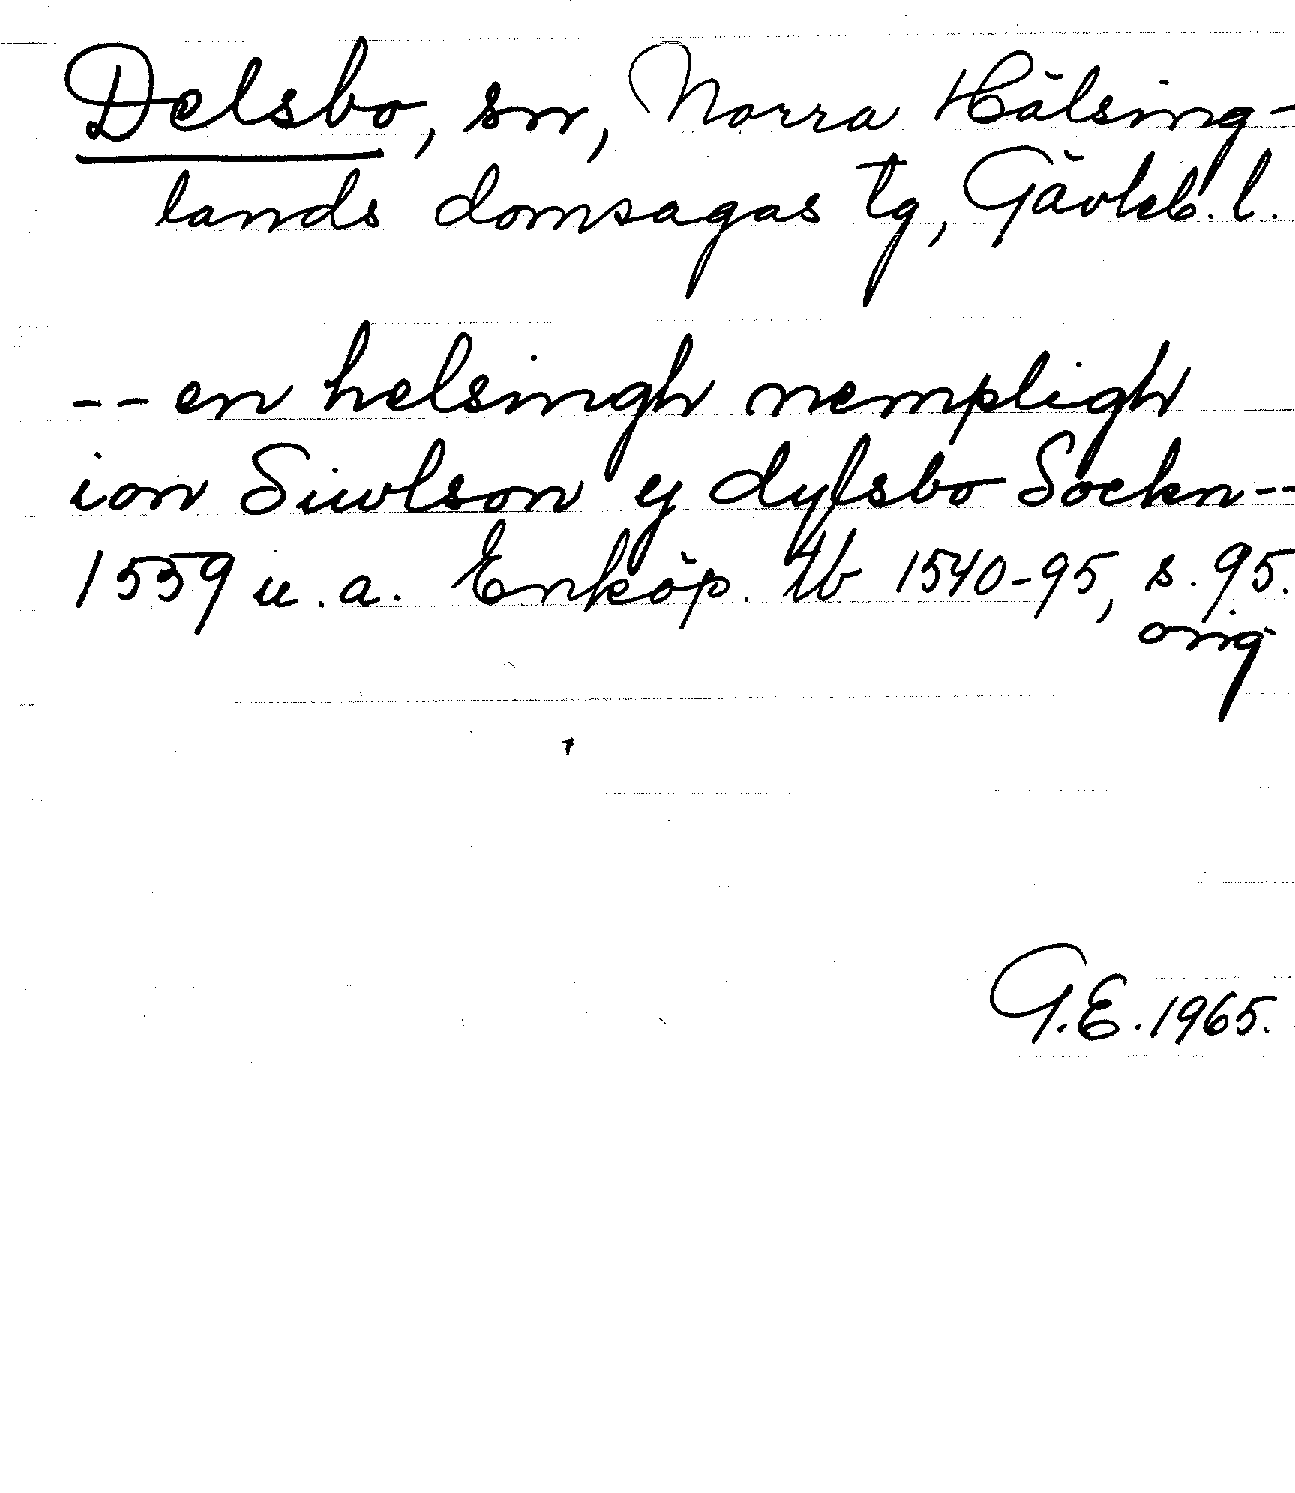 Delsbo, sn, Norra Hälsing-
lands domsagas tg, Gävleb. l.
-- en helsingh nempligh
ion Siwlson y dylsbo Sockn --
1559 u. a. Enköp. tb 1540-95, s. 95.
orig
G.E. 1965.